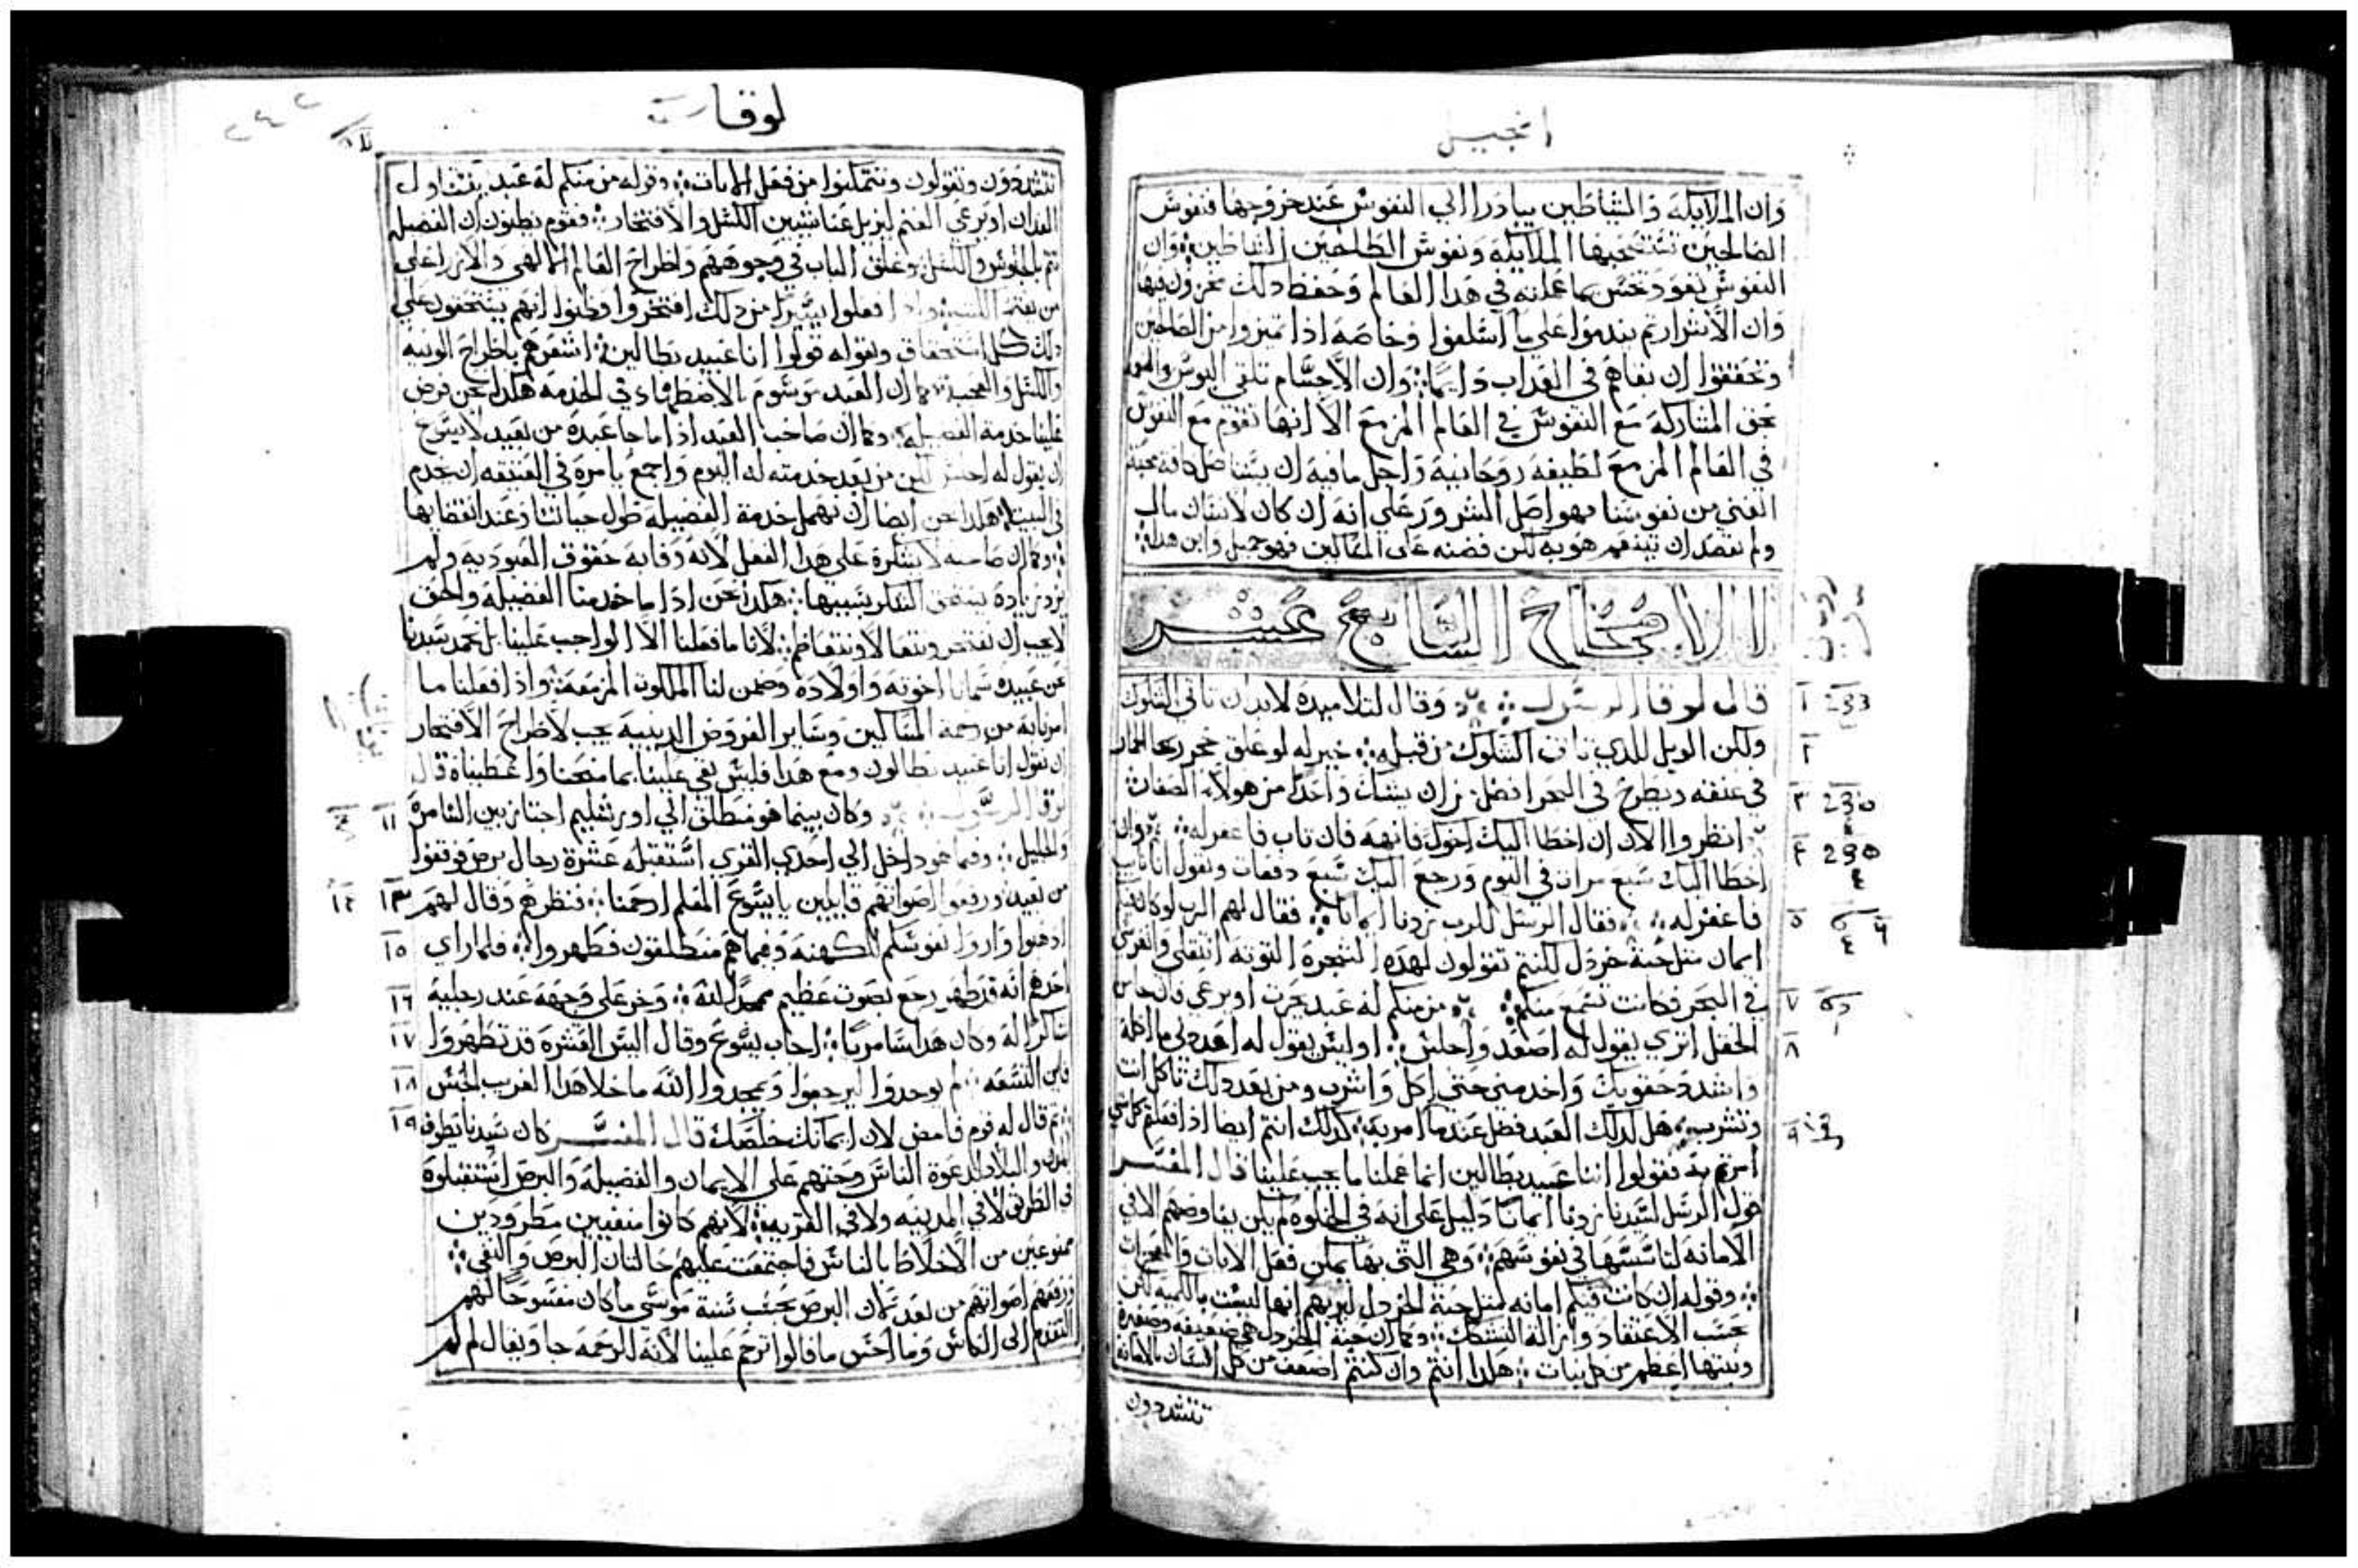 انجيل
وان الملايكة والشياطين يبادرا الي النفوس عند خروجها فنفوس
الصالحين تستصحبها الملايكة ونفوس الطالحين الشياطين وان
النفوس تعود تحس بما عملته في هدا العالم وحفظ دلك تحزون فيها
وان الاشرار يندموا علي ما اسلفوا وخاصه اذا تميزوا من الصالحين
وتحققوا ان بقاهم في العداب دايما وان الاجسام تلقي البوس
بحق المشاركة مع النفوس في العالم المزمع الا انها تقوم مع النفوس
في العالم المزمع لطيفه روحانيه واجل مافيه ان
الغني من نفوسنا فهو اصل الشرور علي انه ان كان لانسان مال
ولم يقصد ان يتنعم هو به لكن فضه علي المساكين فهو جميل
الافتتاح السابع عشر
قال لوقا الرسول وقال لتلاميده لابد ان تاتي الشكوك
ولكن الويل للدي تاتي الشكوك من قبله خير له لو علق حجر رحا الحمار
في عنقه ويطرح في البحر افضل من ان يشكك واحدا من هولاء الصغار
انظروا الان ان اخطا اليك اخوك فانهه فان تاب فاغفر له وان
اخطا اليك سبع مرات في اليوم ورجع اليك سبع دفعات ويقول انا تايب
فاغفر له فقال الرسل للرب زدنا ايمانا فقال لهم الرب لو كان لكم
ايمان مثل حبة خردل لكنتم تقولون لهده الشجرة التوته انتقلي وانغرسي
في البحر فكانت تسمع منكم من منكم له عبد يحرث او يرعي فان جا من
الحقل اتري يقول له اصعد واجلس او ليس يقول له اعد لي ما اكله
واشدد حقويك واخدمني حتي اكل واشرب ومن بعد دلك تاكل انت
وتشرب هل لدلك العبد فضل عندما امر به كدلك انتم ايضا اذا فعلتم كل شي
امرتم به فقولوا اننا عبيد بطالين انما عملنا ما يجب علينا قال المفسر
قول الرسل لسيدنا زدنا ايمانا دليل علي انه في الخلوه لم يكن يفاوضهم الا في
الامانه لتاسسها في نفوسهم وهي التي بها يمكن فعل الايات والمعجزات
وقوله ان كانت فيكم امانه لمثل حبة الخردل ليريهم انها ليست بالكميه لكن
بحسب الاعتقاد وازالة الشكوك وكما ان حبة الخردل هي ضعيفه وصغيره
ونبتها اعظم من كل نبات هكدا انتم وان كنتم اضعف من كل انسان بالامانه
تتشددون
لوقا
تتشددون وتقولون وتتمكنوا من فعل الايات وقوله من منكم له عبد يتناول
الفدان او يرعي الغنم ليزيل عنا شيين الكسل والافتخار فقوم يظنون ان الفضيله
تتم بالجلوس والكسل وغلق الباب في وجوههم واطراح العالم الالهي
افعلوا يسيرا من دلك افتخروا وظنوا انهم يستحقون علي
دلك كل استحقاق وبقوله قولوا انا عبيد بطالين اشعرهم باطراح
والكسل والعجب كما ان العبد مرسوم الاضطهاء في الخدمه هكدا نحن فرض
علينا خدمة الفضيله وكما ان صاحب العبد اذا ما جا عبده من بعيد لا يسرع
ان يقول له اجلس لكن من بعد خدمته له اليوم واجمع يامره في العشيه ان يخدم
في البيت هكدا نحن ايضا ان نهمل خدمة الفضيله طول حياتنا وعند انقضايها
وكما ان صاحبه لا يشكره علي هدا الفعل لانه وفا به حقوق العبوديه ولم
يزد زيادة يستحق الشكر بسببها هكدا نحن اذا ما خدمنا الفضيلة والحق
لا يجب ان نفتخر ونتعالا ونتعاظم لانا ما فعلنا الا الواجب علينا بل نحمد سيدنا
عن عبيده سمانا اخوته واولاده وضمن لنا الملكوت المزمعة واذا فعلنا ما
امرنا به من رحمة المساكين وساير الفروض الدينيه يجب لاطراح الافتخار
ان نقول انا عبيد بطالون ومع هدا فليس بقي علينا بما منحنا واعطيناه قال
لوقا الرسول وكان بينما هو منطلق الي اورشليم اجتاز بين السامرة
والجليل وفيما هو داخل الي احدي القري استقبله عشرة رجال برص فوقفوا
من بعيد ورفعوا اصواتهم قايلين يا يسوع المعلم ارحمنا فنظرهم وقال لهم
ادهبوا واروا نفوسكم للكهنه وفيما هم منطلقون فطهروا فلما راي
احدهم انه قد طهر رجع بصوت عظيم ممجدا لله وخر علي وجهه عند رجليه
شاكرا له وكان هدا سامريا اجاب يسوع وقال اليس العشرة قد تطهروا
فاين التسعه لم يوجدوا ليرجعوا ويمجدوا الله ما خلا هدا الغريب الجنس
ثم قال له قوم فامض لان ايمانك خلصك قال المفسر كان سيدنا يطوف
المدن والبلاد لدعوة الناس وحثهم علي الايمان والفضيله والبرص استقبلوه
في الطريق لا في المدينه ولا في القريه لانهم كانوا منفيين مطرودين
ممنوعين من الاختلاط بالناس فاجتمعت عليهم حالتان البرص والنفي
ورفعهم اصواتهم من بعد لان البرص بحسب سنة موسي ما كان مفسوحا لهم
التقدم الي الناس وما احسن ما قالوا ترحم علينا لانه للرحمه جا ويقال لم لم